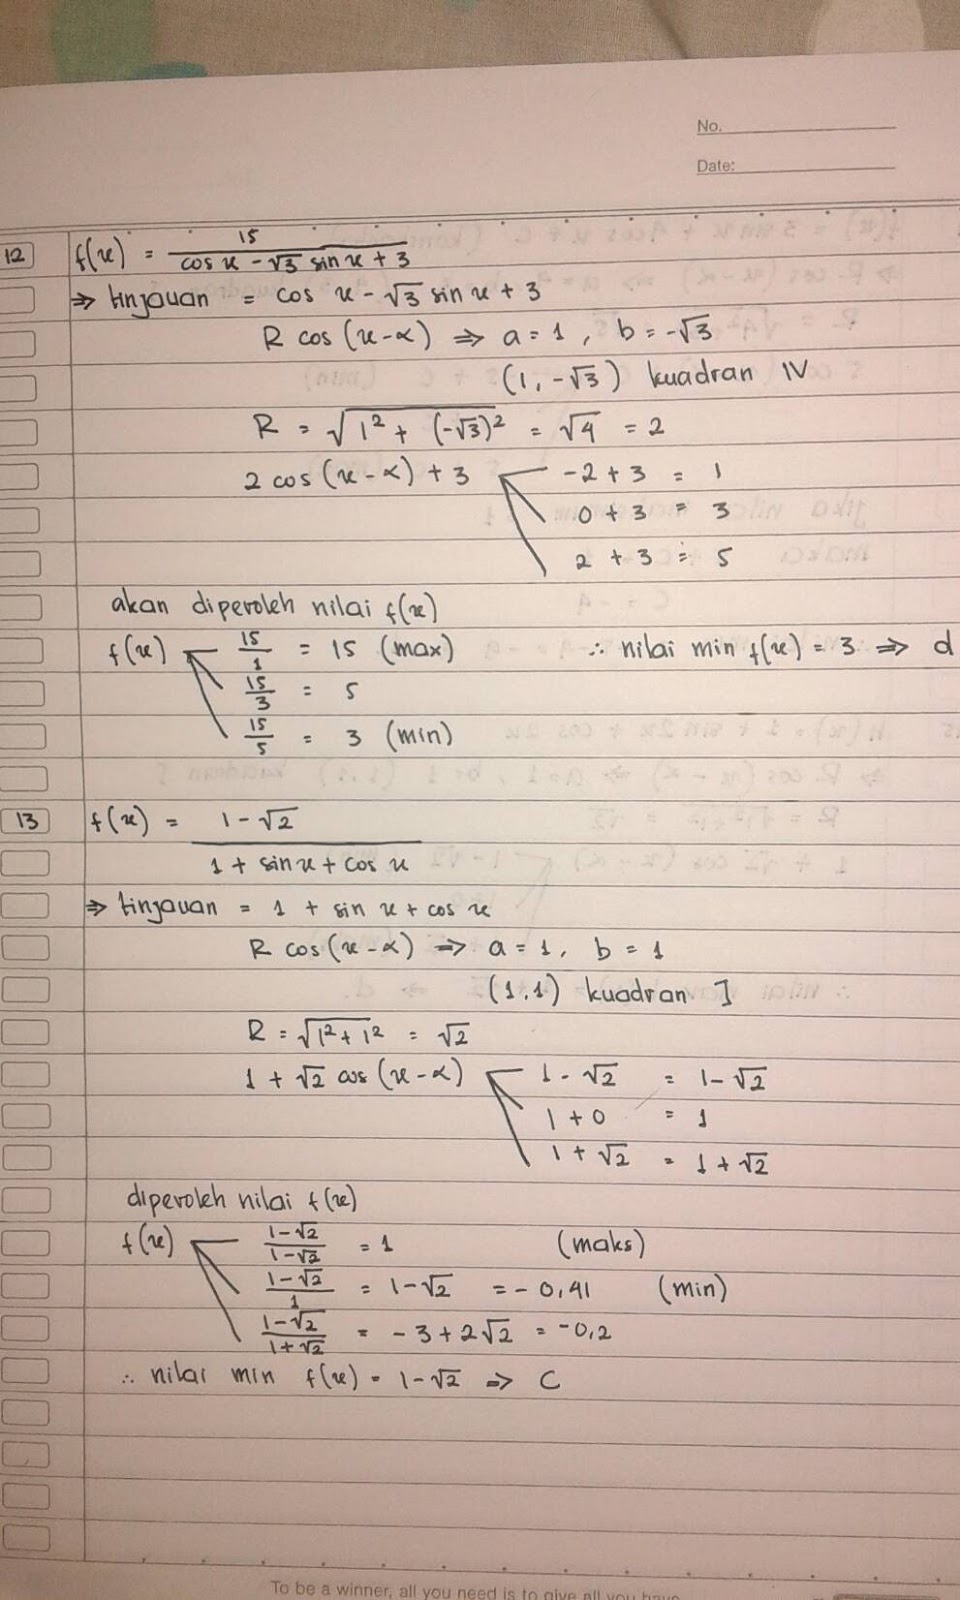 No.
Date:
12 f(x) = 15 / (cos x - √3 sin x + 3)
⇒ tinjauan = cos x - √3 sin x + 3
R cos (x-α) ⇒ a = 1 , b = -√3
(1, -√3) kuadran IV
R = √(1² + (-√3)²) = √4 = 2
2 cos (x - α) + 3 -2 + 3 = 1
0 + 3 = 3
2 + 3 = 5
akan diperoleh nilai f(x)
f(x) 15/1 = 15 (max) ∴ nilai min f(x) = 3 ⇒ d
15/3 = 5
15/5 = 3 (min)
13 f(x) = (1 - √2) / (1 + sin x + cos x)
⇒ tinjauan = 1 + sin x + cos x
R cos (x - α) ⇒ a = 1, b = 1
(1,1) kuadran I
R = √(1² + 1²) = √2
1 + √2 cos (x - α) 1 - √2 = 1 - √2
1 + 0 = 1
1 + √2 = 1 + √2
diperoleh nilai f(x)
f(x) (1-√2)/(1-√2) = 1 (maks)
(1-√2)/1 = 1 - √2 = - 0,41 (min)
(1-√2)/(1+√2) = - 3 + 2√2 = -0,2
∴ nilai min f(x) = 1 - √2 ⇒ C
To be a winner, all you need is to give all you have